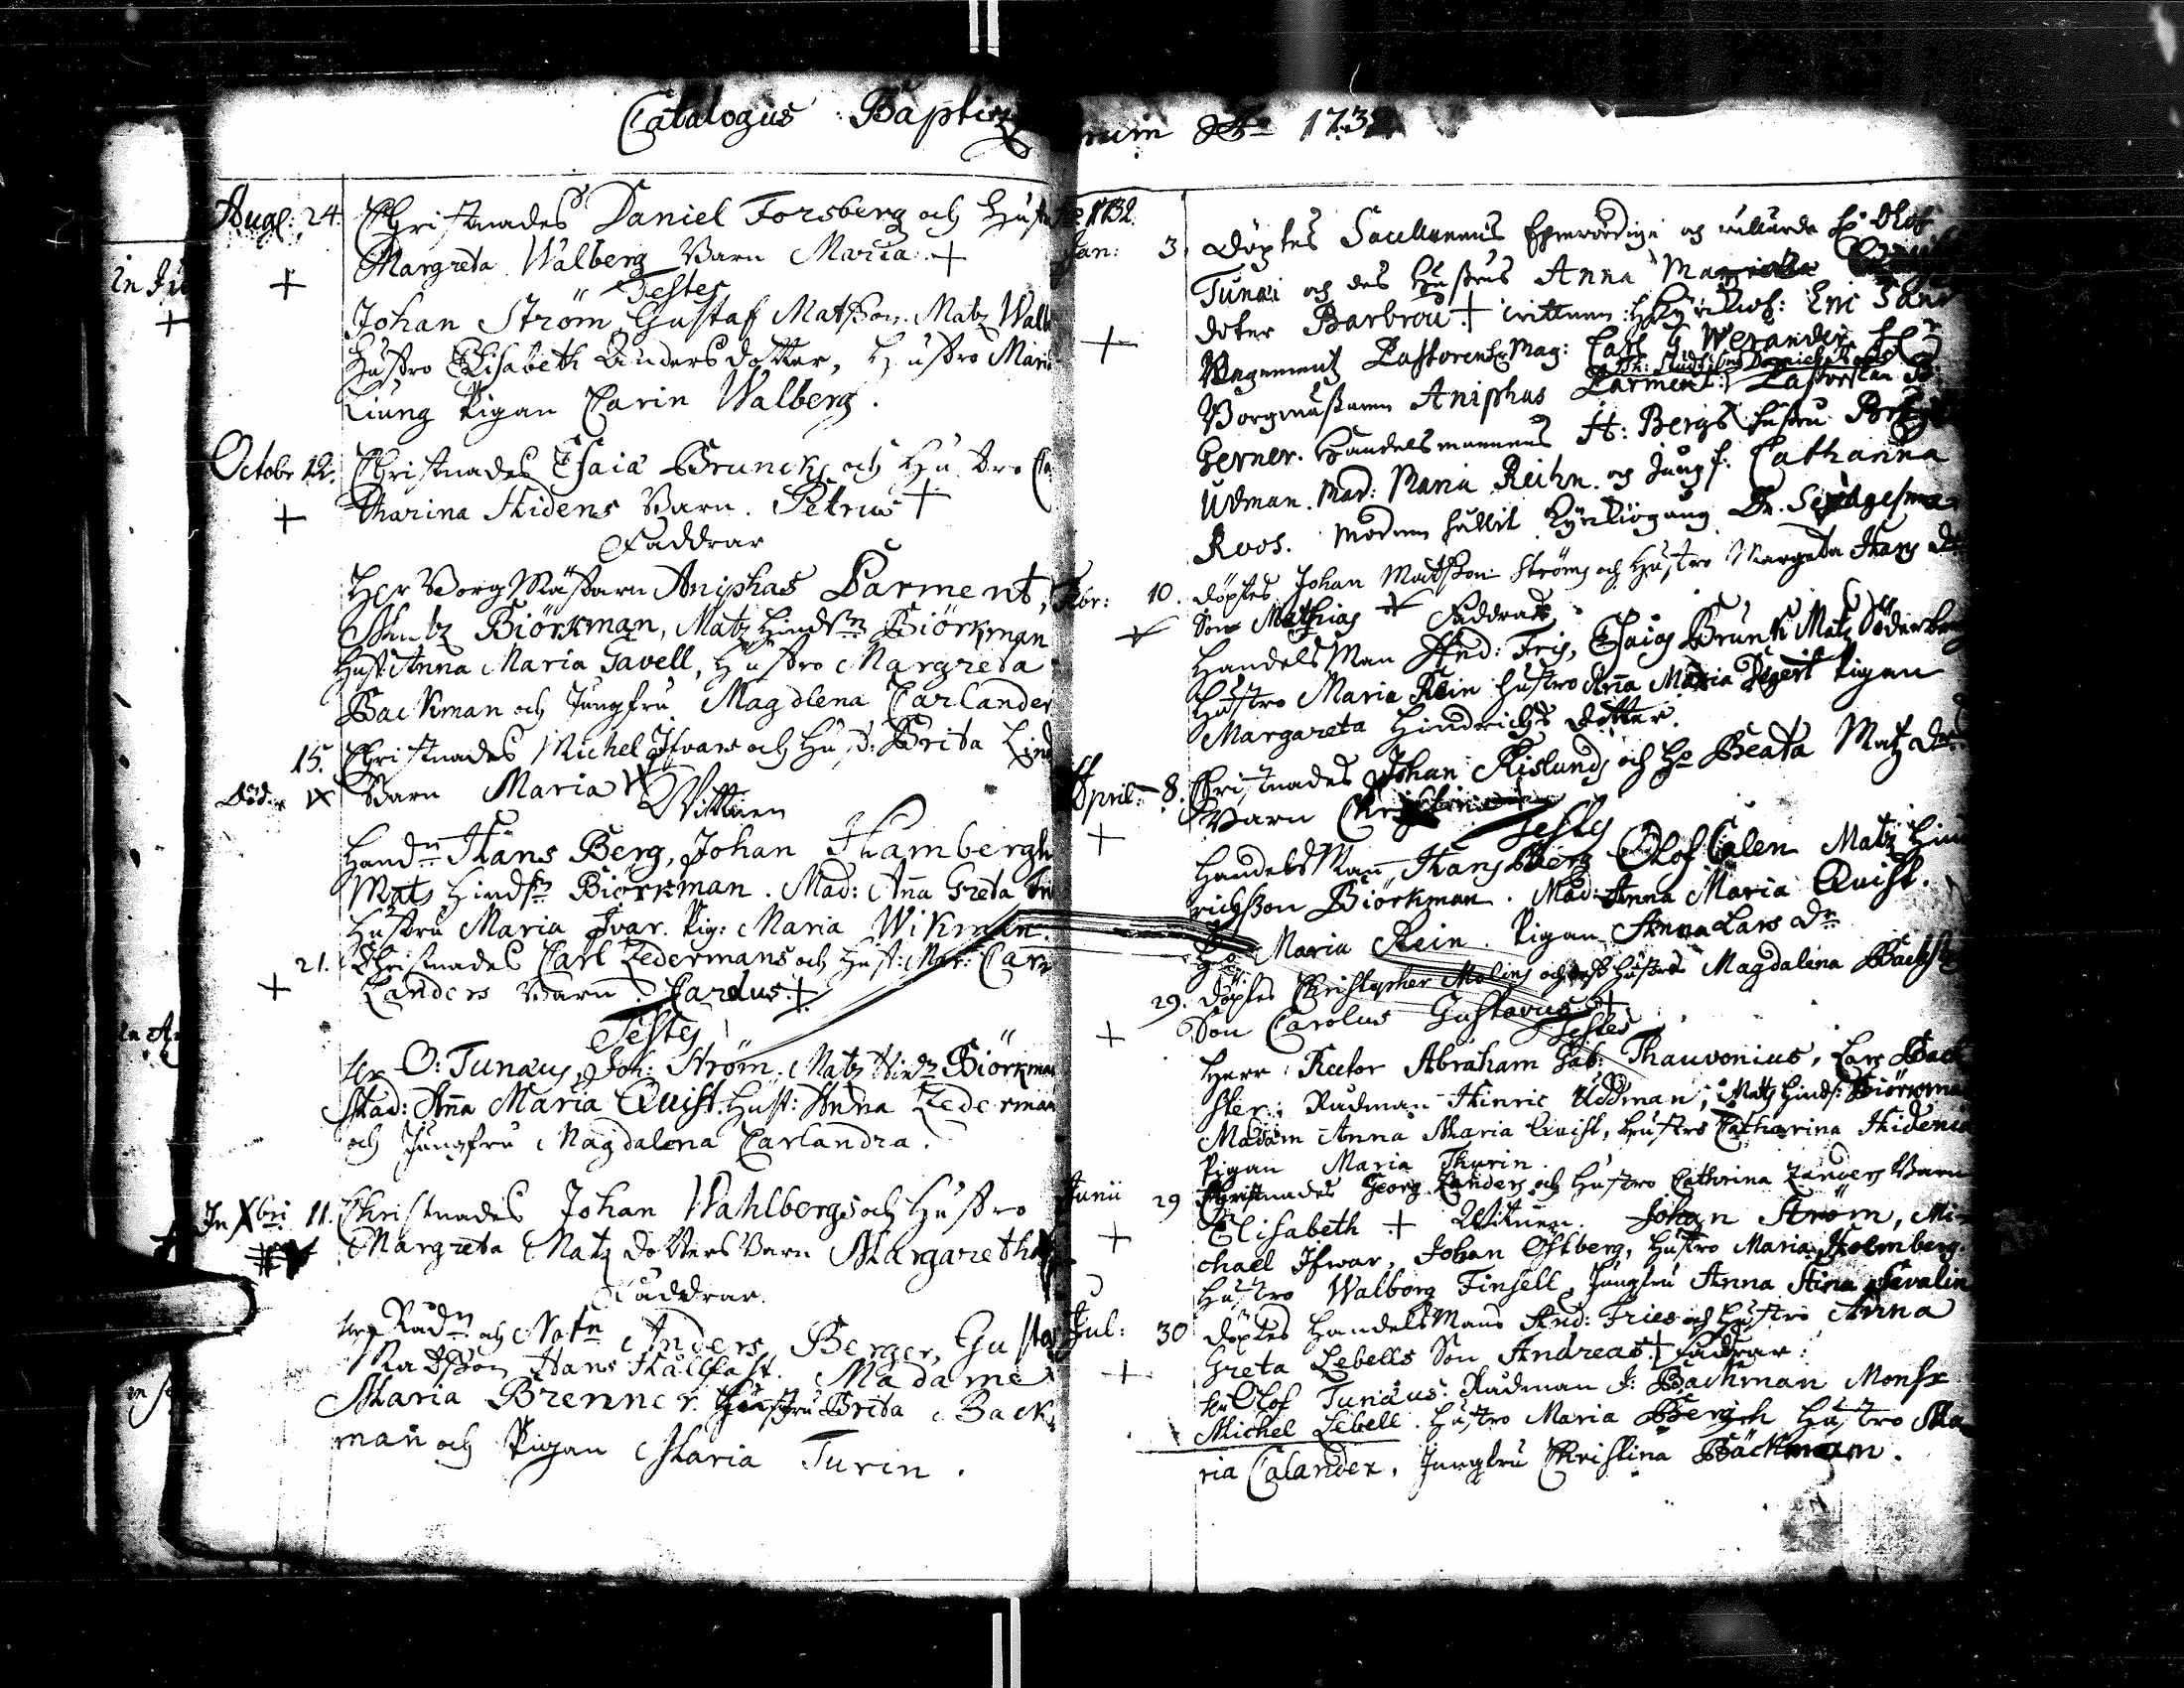 Catalogus Baptiz
Aug: 24. Christnades Daniel Forsberg och Hust
Margreta Walberg Barn Maria +
+ Testes
Johan Ström, Gustaf Matsson. Matz Walb
Hustro Elisabeth Andersdotter, Hustro Mari
Liung Pigan Carin Walberg.
Octobr 12. Christnades Esaiæ Bruncks och Hustro Ca
+ tharina Hidens Barn. Petrus +
Faddrar
Her Borgmästarn Aniphas Parment,
Matz Biörkman, Matz Hindsn Biörkman
Hust Anna Maria Gavell, Hustro Margreta
Backman och Jungfru Magdlena Carlander
15. Christnades Michel Ifvars och Hust: Brita Lind
Död Barn Maria
Wittnen
Handn Hans Berg, Johan Hambergh
Mats Hindsn Biörkman. Mad: Aña Greta
Hustru Maria Ivar. Pig: Maria Wikman.
21. Christnades Carl Zedermans och Hust: Mar: Car
+ landers Barn. Carolus +
Testes
Hr O: Tunæus, Joh: Ström. Matz Hindn Biörkman
Mad: Aña Maria Quist. Hust: Anna Zederman
och Jungfru Magdalena Carlandra.
In Xbri 11. Christnades Johan Wahlbergs och Hustro
Margreta Matz dotters Barn Margaretha
Faddrar.
Hr Rådn och Notn Anders Berger, Gustaf
Madtsson Hans Hällfast. Madame
Maria Brenner. Hustru Brita Back
man och Pigan Maria Turin.
rum 173
1732.
Jan: 3. Döptes Sacellanens Ehrewördige och wällärde H: Olof
Tunæi och des Hustrus Anna
doter Barbro + wittnen: Eric
+ Regement Pastoren Mag: Carl G Weranders
Borgmästaren Aniphas Parment: Pastorskan
Gerner. Handelsmannens H: Bergs hustru
Udman. Mad: Maria Reihn. och Jungf: Catharina
Roos. Modren hållit kyrkiogång Dn. Sexagesma
Febr: 10. döptes Johan Matsson Ströms och Hustro Margeta Hans dr
Son Mathias Faddrar
Handels Man And: Fris, Esaias Brunk Matz Söderberg
Hustro Maria Rein hustro Aña Maria Pigan
Margareta Hindrichs dotter.
April: 8. Christnades Johan Aislunds och Ho Beata Matz dr
Barn
+ Testes
Handels Man, Hans Berg Olof Calen Matz Hin
richsson Biörkman. Mad: Anna Maria Quist.
Ho Maria Rein. Pigan Anna Lars dr
29. döptes Christopher Molins och dess hustrus Magdalena Backst
+ Son Carolus Gustavus +
Testes
Herr Rector Abraham Gab: Thauvonius, Lars Back
ster: Rådman Hinric Uddman, Matz Hinds: Biörkma
Madam Anna Maria Quist, hustro Catharina Hidenia
Pigan Maria Thurin.
Junii 29 Christnades Georg Zanders och Hustro Cathrina Zanders Barn
+ Elisabeth + Witnen. Johan Ström, Mi-
chael Ifwar, Johan Östberg, hustro Maria Holmberg.
Hustro Walborg Finsell, Jungfru Anna Stina Sevalin
Jul: 30 döptes Handels Mans And: Fries och Hustro Anna
+ Greta Lebells Son Andreas + Fadrar:
Hr Olof Tunæus. Rådman J: Backman Monsr
Michel Lebell. Hustro Maria Bergh Hustro Ma
ria Calander, Jungfru Christina Backman.